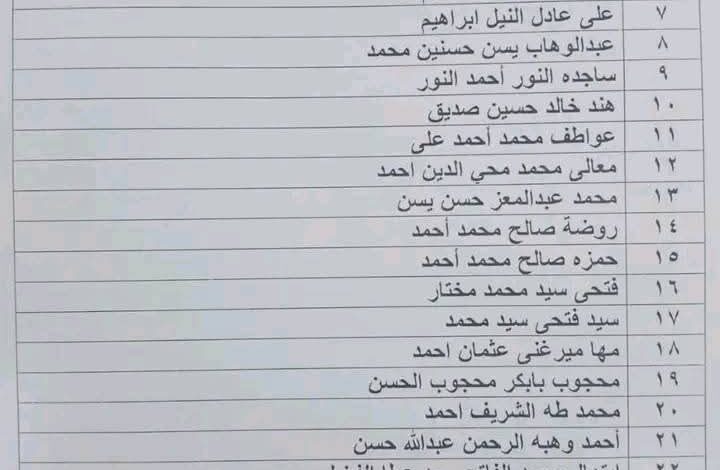 ٧ على عادل النيل ابراهيم
٨ عبدالوهاب يسن حسنين محمد
٩ ساجده النور أحمد النور
١٠ هند خالد حسين صديق
١١ عواطف محمد أحمد على
١٢ معالى محمد محي الدين احمد
١٣ محمد عبدالمعز حسن يسن
١٤ روضة صالح محمد أحمد
١٥ حمزه صالح محمد أحمد
١٦ فتحى سيد محمد مختار
١٧ سيد فتحى سيد محمد
١٨ مها ميرغنى عثمان احمد
١٩ محجوب بابكر محجوب الحسن
٢٠ محمد طه الشريف احمد
٢١ أحمد وهبه الرحمن عبدالله حسن
٢٢